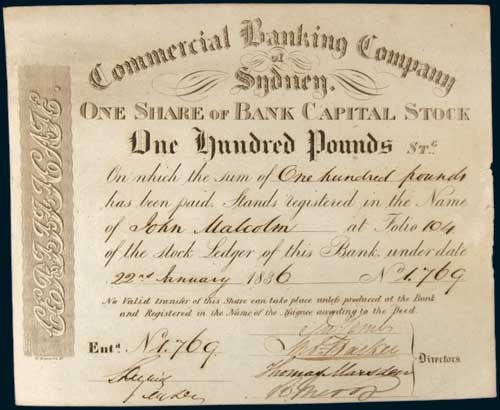 Commercial Banking Company
of
Sydney.
ONE SHARE OF BANK CAPITAL STOCK
One Hundred Pounds St.g
On which the sum of One hundred pounds
has been paid. Stands registered in the Name
of John Malcolm at Folio 104
of the stock Ledger of this Bank, under date
22nd January 1836 No 1.769
No Valid transfer of this Share can take place unless produced at the Bank
and Registered in the Name of the Assignee according to the Deed.
Ent.d No 1.769
Thomas Marsden
Directors.
CERTIFICATE.